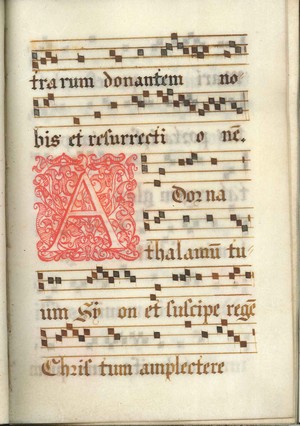 trarum donantem no
bis et resurrecti o nē.
A Dorna
thalamū tu-
um Sy on et suscipe regē
Chris tum amplectere